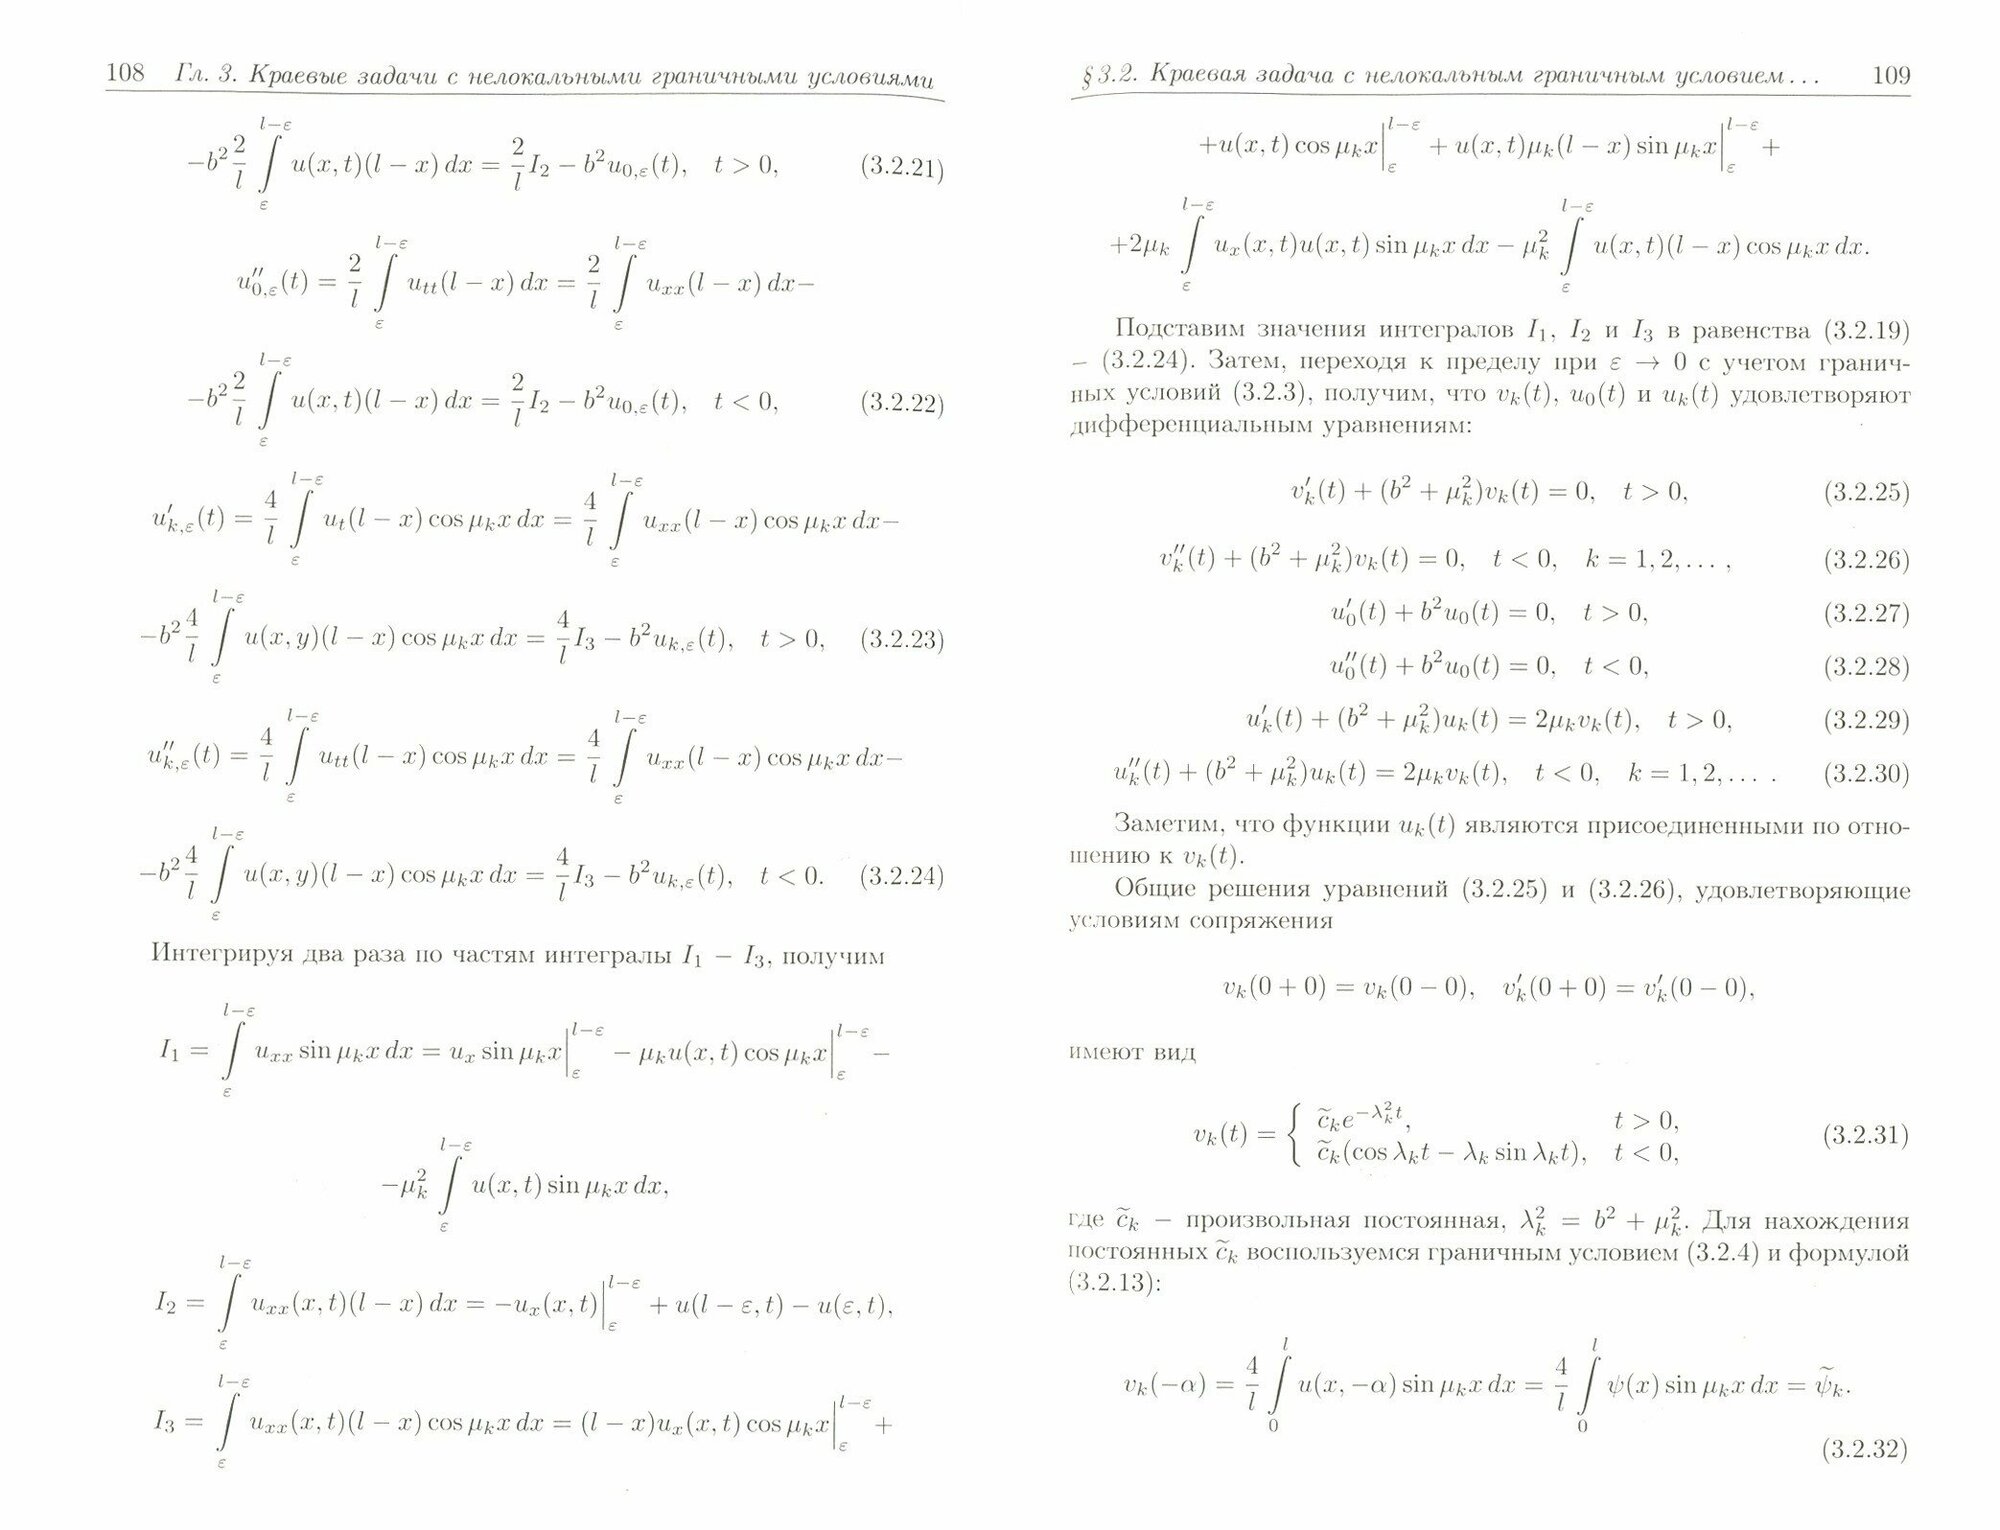 108 Гл. 3. Краевые задачи с нелокальными граничными условиями
$-b^2\frac{2}{l}\int\limits_{\varepsilon}^{l-\varepsilon} u(x,t)(l-x)\,dx = \frac{2}{l}I_2 - b^2u_{0,\varepsilon}(t), \quad t>0,$ (3.2.21)
$u''_{0,\varepsilon}(t) = \frac{2}{l}\int\limits_{\varepsilon}^{l-\varepsilon} u_{tt}(l-x)\,dx = \frac{2}{l}\int\limits_{\varepsilon}^{l-\varepsilon} u_{xx}(l-x)\,dx-$
$-b^2\frac{2}{l}\int\limits_{\varepsilon}^{l-\varepsilon} u(x,t)(l-x)\,dx = \frac{2}{l}I_2 - b^2u_{0,\varepsilon}(t), \quad t<0,$ (3.2.22)
$u'_{k,\varepsilon}(t) = \frac{4}{l}\int\limits_{\varepsilon}^{l-\varepsilon} u_t(l-x)\cos\mu_kx\,dx = \frac{4}{l}\int\limits_{\varepsilon}^{l-\varepsilon} u_{xx}(l-x)\cos\mu_kx\,dx-$
$-b^2\frac{4}{l}\int\limits_{\varepsilon}^{l-\varepsilon} u(x,y)(l-x)\cos\mu_kx\,dx = \frac{4}{l}I_3 - b^2u_{k,\varepsilon}(t), \quad t>0,$ (3.2.23)
$u''_{k,\varepsilon}(t) = \frac{4}{l}\int\limits_{\varepsilon}^{l-\varepsilon} u_{tt}(l-x)\cos\mu_kx\,dx = \frac{4}{l}\int\limits_{\varepsilon}^{l-\varepsilon} u_{xx}(l-x)\cos\mu_kx\,dx-$
$-b^2\frac{4}{l}\int\limits_{\varepsilon}^{l-\varepsilon} u(x,y)(l-x)\cos\mu_kx\,dx = \frac{4}{l}I_3 - b^2u_{k,\varepsilon}(t), \quad t<0.$ (3.2.24)
Интегрируя два раза по частям интегралы $I_1$ – $I_3$, получим
$I_1 = \int\limits_{\varepsilon}^{l-\varepsilon} u_{xx}\sin\mu_kx\,dx = u_x\sin\mu_kx\Big|_{\varepsilon}^{l-\varepsilon} - \mu_ku(x,t)\cos\mu_kx\Big|_{\varepsilon}^{l-\varepsilon}-$
$-\mu_k^2\int\limits_{\varepsilon}^{l-\varepsilon} u(x,t)\sin\mu_kx\,dx,$
$I_2 = \int\limits_{\varepsilon}^{l-\varepsilon} u_{xx}(x,t)(l-x)\,dx = -u_x(x,t)\Big|_{\varepsilon}^{l-\varepsilon} + u(l-\varepsilon,t) - u(\varepsilon,t),$
$I_3 = \int\limits_{\varepsilon}^{l-\varepsilon} u_{xx}(x,t)(l-x)\cos\mu_kx\,dx = (l-x)u_x(x,t)\cos\mu_kx\Big|_{\varepsilon}^{l-\varepsilon}+$
§ 3.2. Краевая задача с нелокальным граничным условием... 109
$+u(x,t)\cos\mu_kx\Big|_{\varepsilon}^{l-\varepsilon} + u(x,t)\mu_k(l-x)\sin\mu_kx\Big|_{\varepsilon}^{l-\varepsilon}+$
$+2\mu_k\int\limits_{\varepsilon}^{l-\varepsilon} u_x(x,t)u(x,t)\sin\mu_kx\,dx - \mu_k^2\int\limits_{\varepsilon}^{l-\varepsilon} u(x,t)(l-x)\cos\mu_kx\,dx.$
Подставим значения интегралов $I_1$, $I_2$ и $I_3$ в равенства (3.2.19)
– (3.2.24). Затем, переходя к пределу при $\varepsilon\to0$ с учетом гранич-
ных условий (3.2.3), получим, что $v_k(t)$, $u_0(t)$ и $u_k(t)$ удовлетворяют
дифференциальным уравнениям:
$v'_k(t) + (b^2+\mu_k^2)v_k(t) = 0, \quad t>0,$ (3.2.25)
$v''_k(t) + (b^2+\mu_k^2)v_k(t) = 0, \quad t<0, \quad k=1,2,\ldots,$ (3.2.26)
$u'_0(t) + b^2u_0(t) = 0, \quad t>0,$ (3.2.27)
$u''_0(t) + b^2u_0(t) = 0, \quad t<0,$ (3.2.28)
$u'_k(t) + (b^2+\mu_k^2)u_k(t) = 2\mu_kv_k(t), \quad t>0,$ (3.2.29)
$u''_k(t) + (b^2+\mu_k^2)u_k(t) = 2\mu_kv_k(t), \quad t<0, \quad k=1,2,\ldots.$ (3.2.30)
Заметим, что функции $u_k(t)$ являются присоединенными по отно-
шению к $v_k(t)$.
Общие решения уравнений (3.2.25) и (3.2.26), удовлетворяющие
условиям сопряжения
$v_k(0+0) = v_k(0-0), \quad v'_k(0+0) = v'_k(0-0),$
имеют вид
$v_k(t) = \begin{cases} \widetilde{c}_ke^{-\lambda_k^2t}, & t>0, \\ \widetilde{c}_k(\cos\lambda_kt - \lambda_k\sin\lambda_kt), & t<0, \end{cases}$ (3.2.31)
где $\widetilde{c}_k$ – произвольная постоянная, $\lambda_k^2 = b^2+\mu_k^2$. Для нахождения
постоянных $\widetilde{c}_k$ воспользуемся граничным условием (3.2.4) и формулой
(3.2.13):
$v_k(-\alpha) = \frac{4}{l}\int\limits_0^l u(x,-\alpha)\sin\mu_kx\,dx = \frac{4}{l}\int\limits_0^l \psi(x)\sin\mu_kx\,dx = \widetilde{\psi}_k.$
(3.2.32)